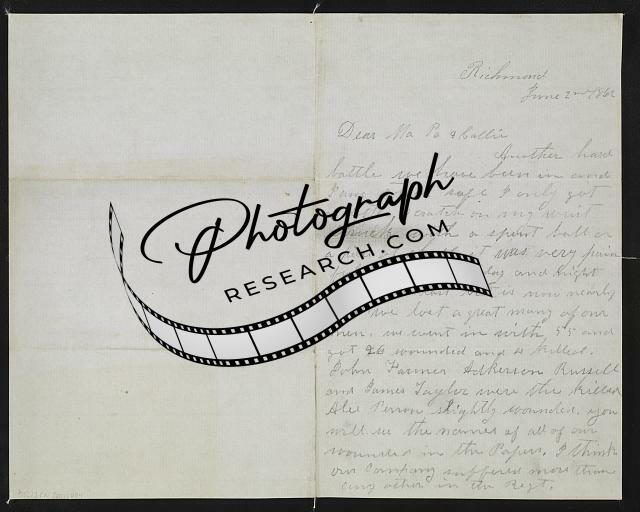 Richmond
June 2nd 1862
Dear Ma Pa & Callie
Another hard
battle we have been in and
safe I only got
scratch on my wrist
a spent ball or
it was very pain
day and night
but is now nearly
we lost a great many of our
men. we went in with 55 and
got 26 wounded and 4 killed.
John Farmer Adkerson Russell
and James Taylor were the killed
Alec Perron slightly wounded. you
will see the names of all of our
wounded in the Papers. I think
our Company suffered more than
any other in the Regt.
Photograph
RESEARCH.COM